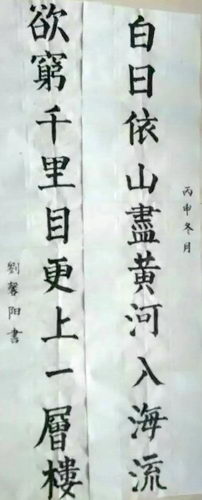 白日依山盡黃河入海流
丙申冬月
欲窮千里目更上一層樓
劉馨阳書